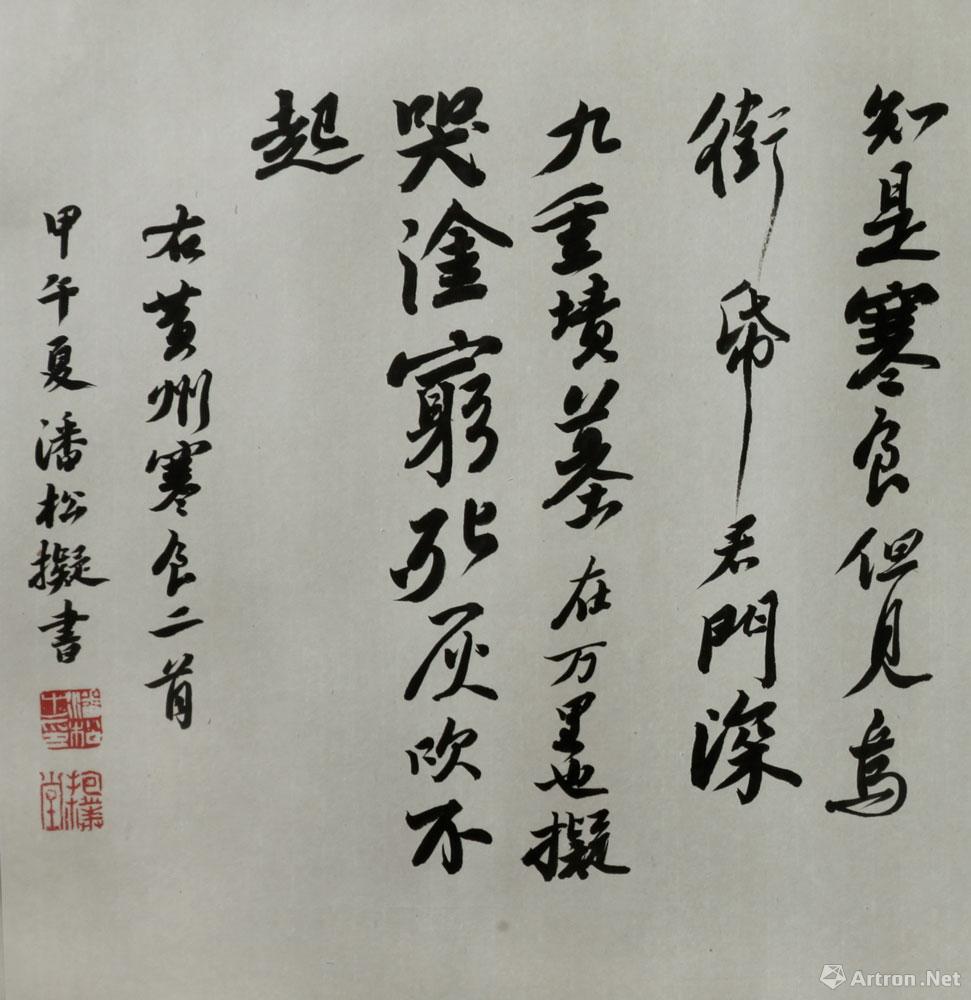 知是寒食但見烏
銜帋君門深
九重墳墓在万里也擬
哭塗窮死灰吹不
起
右黄州寒食二首
甲午夏潘松擬書
抱樸堂
Artron.Net